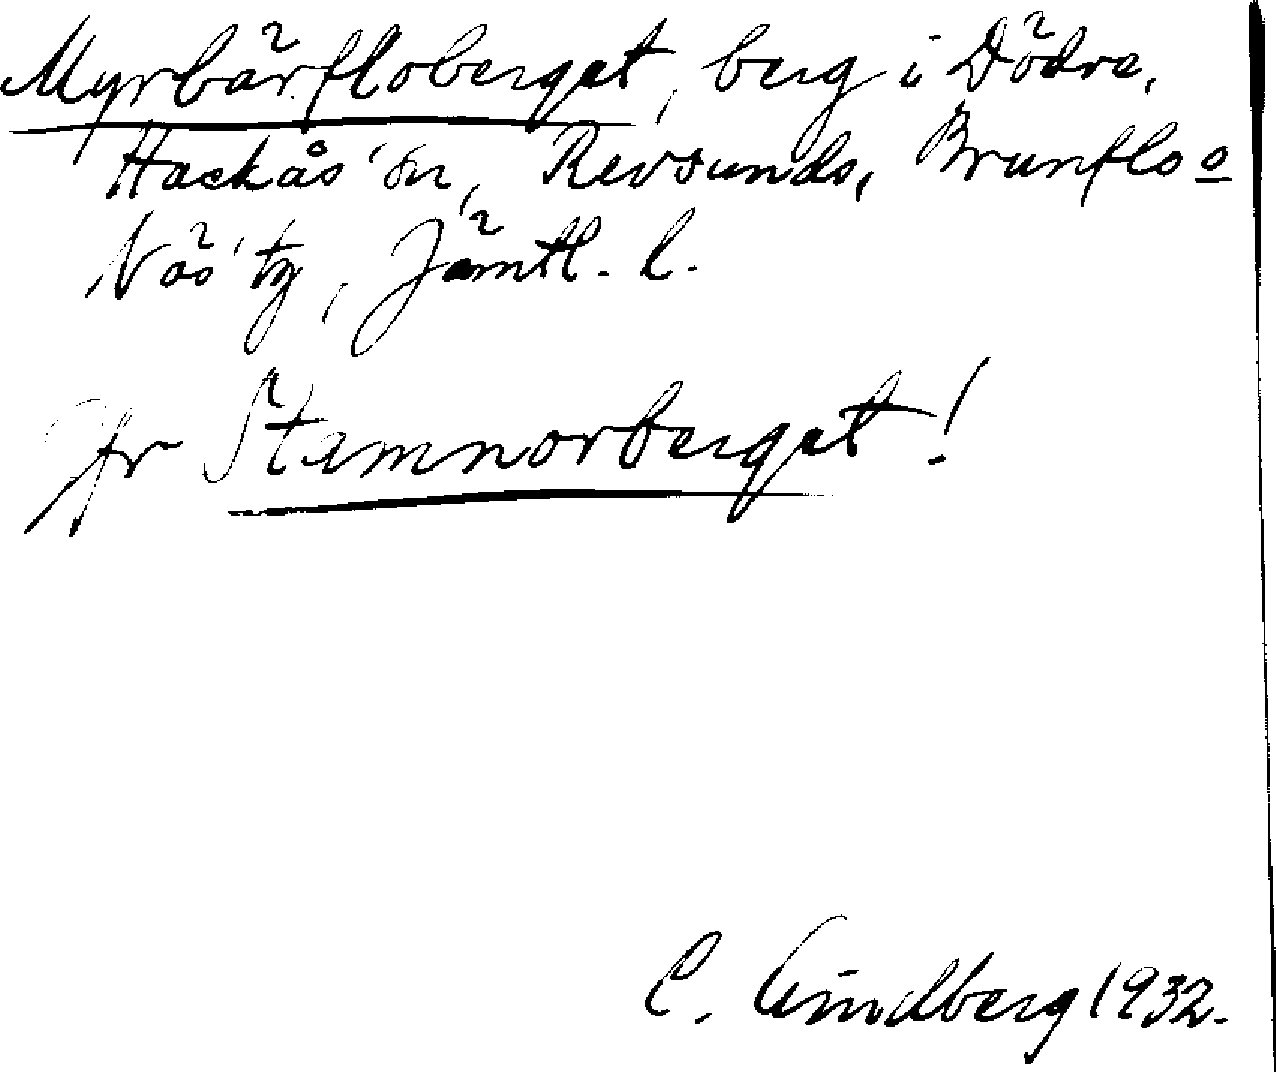 Myrbärfloberget, berg i Dödre,
Hackås sn, Revsunds, Brunflo o
Näs tg, Jämtl. l.
Jfr Stamnorberget!
C. Lindberg 1932.